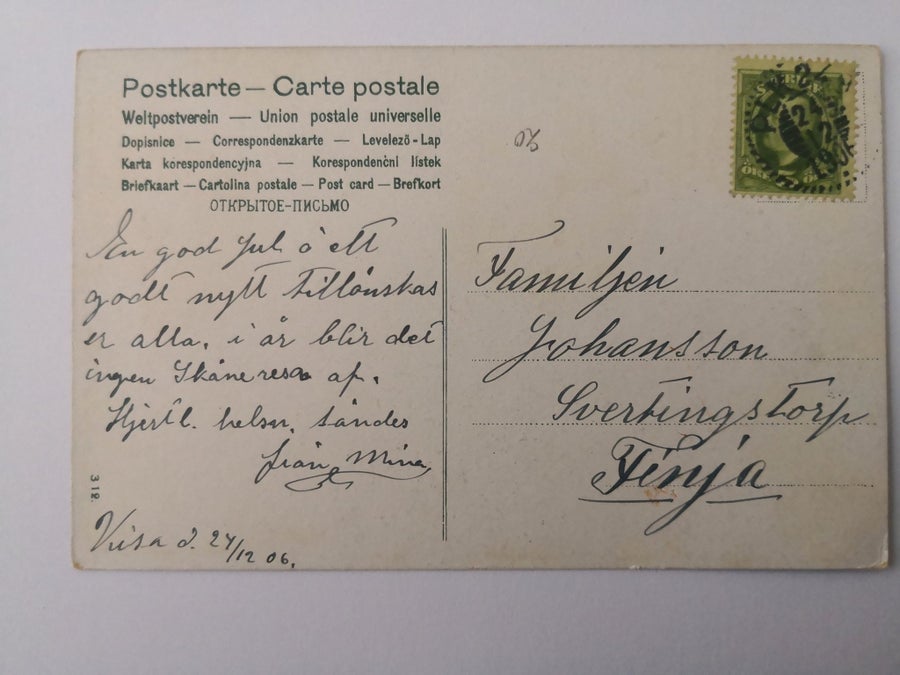 Postkarte — Carte postale
Weltpostverein — Union postale universelle
Dopisnice — Correspondenzkarte — Levelező-Lap
Karta korespondencyjna — Korespondenční lístek
Briefkaart — Cartolina postale — Post card — Brefkort
ОТКРЫТОЕ-ПИСЬМО
En god Jul å ett
godt nytt tillönskas
er alla, i år blir det
ingen Skåneresa af.
Hjertl. helsn. sändes
från Mina
312.
d. 24/12 06.
Familjen
Johansson
Svertingstorp
Finja
SVERIGE
24
12
ÖRE